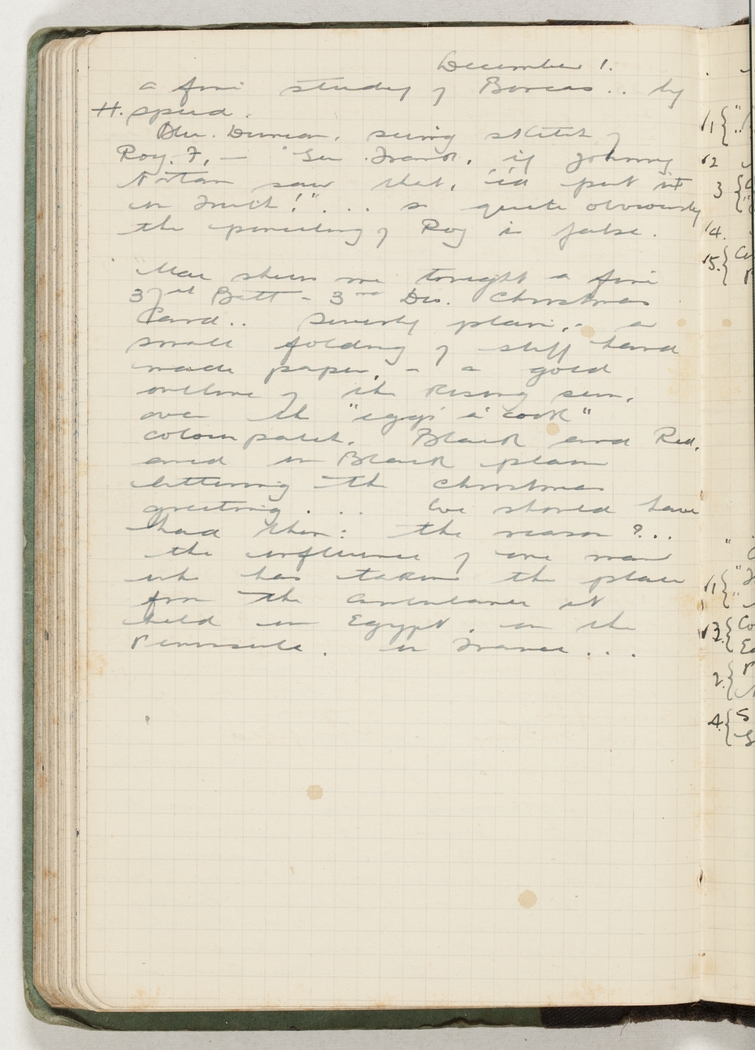 December 1.
a fine study of Boreas.. by
H. speed.
Chu. Duncan, seeing sketch of
Roy. F, — "Gee Frank, if Johnny
Norton saw that, 'id put it
in Truth!"... so quite obviously
the penciling of Roy is false.
Mac shew me tonight a fine
37th Batt - 3rd Div. Christmas
Card.. Severely plain, - a
small folding of stiff hand
made paper, - a gold
outline of the Rising sun,
over the "eggs a' cook"
colour patch, Black and Red,
and in Black plain
lettering the Christmas
greeting.... We should have
had them: the reason?...
the influence of one man
who has taken the place
from the Ambulance it
held in Egypt, on the
Peninsula, in France...
11 {
12
3 {
14.
15. {
11 {
13. {
2. {
4. {